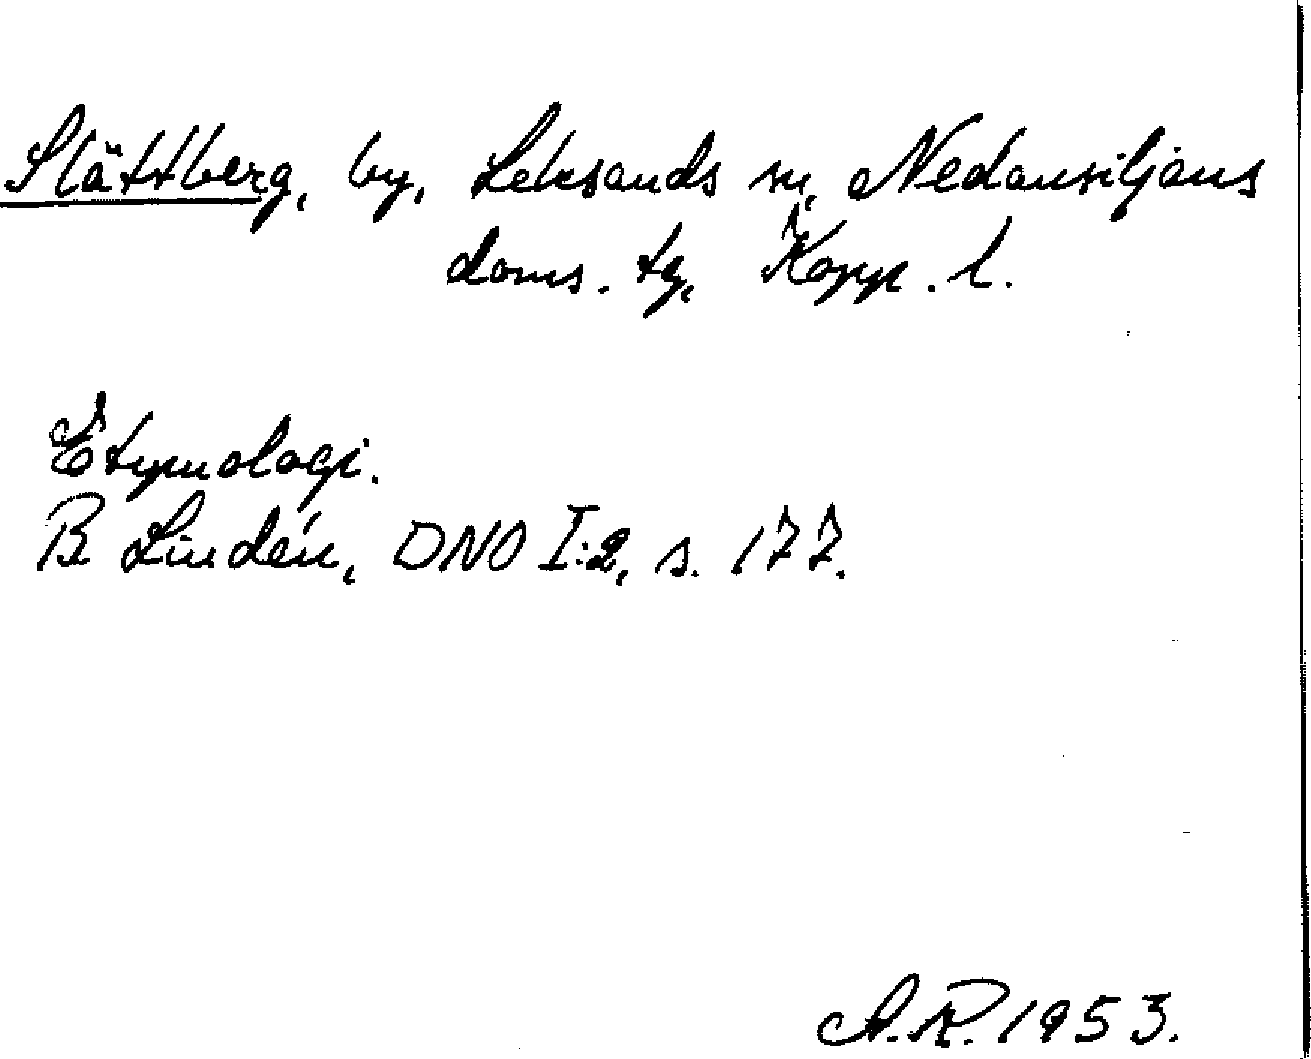 Slättberg, by, Leksands sn, Nedansiljans
doms. tg, Kopp. l.
Etymologi.
B Lindén, DNO I:2, s. 177.
A.R. 1953.